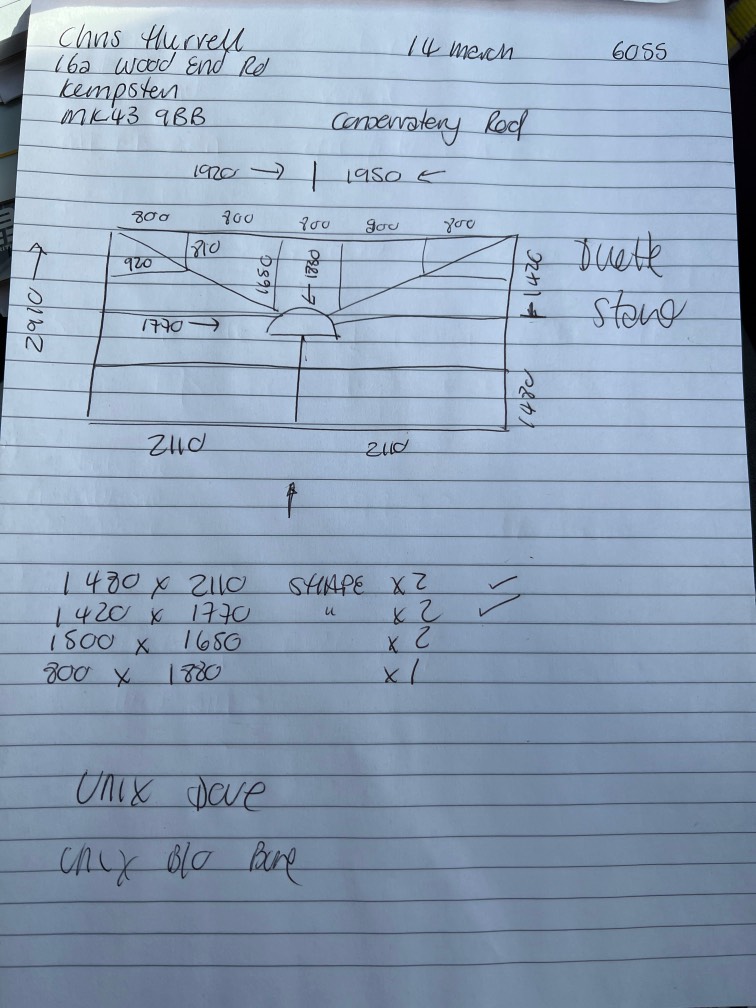 Chris Hurrell 14 March 6055
162 Wood End Rd
Kempston
MK43 9BB Conservatory Roof
1920 → | 1950 ←
800 800 800 900 800
920 810 1650 ← 1880 1420 Duette
2910 → 1770 → Stand
1480
2110 2110
1480 x 2110 SHAPE x 2 ✓
1420 x 1770 " x 2 ✓
1500 x 1650 x 2
800 x 1880 x 1
Unix Dove
Unix B/O